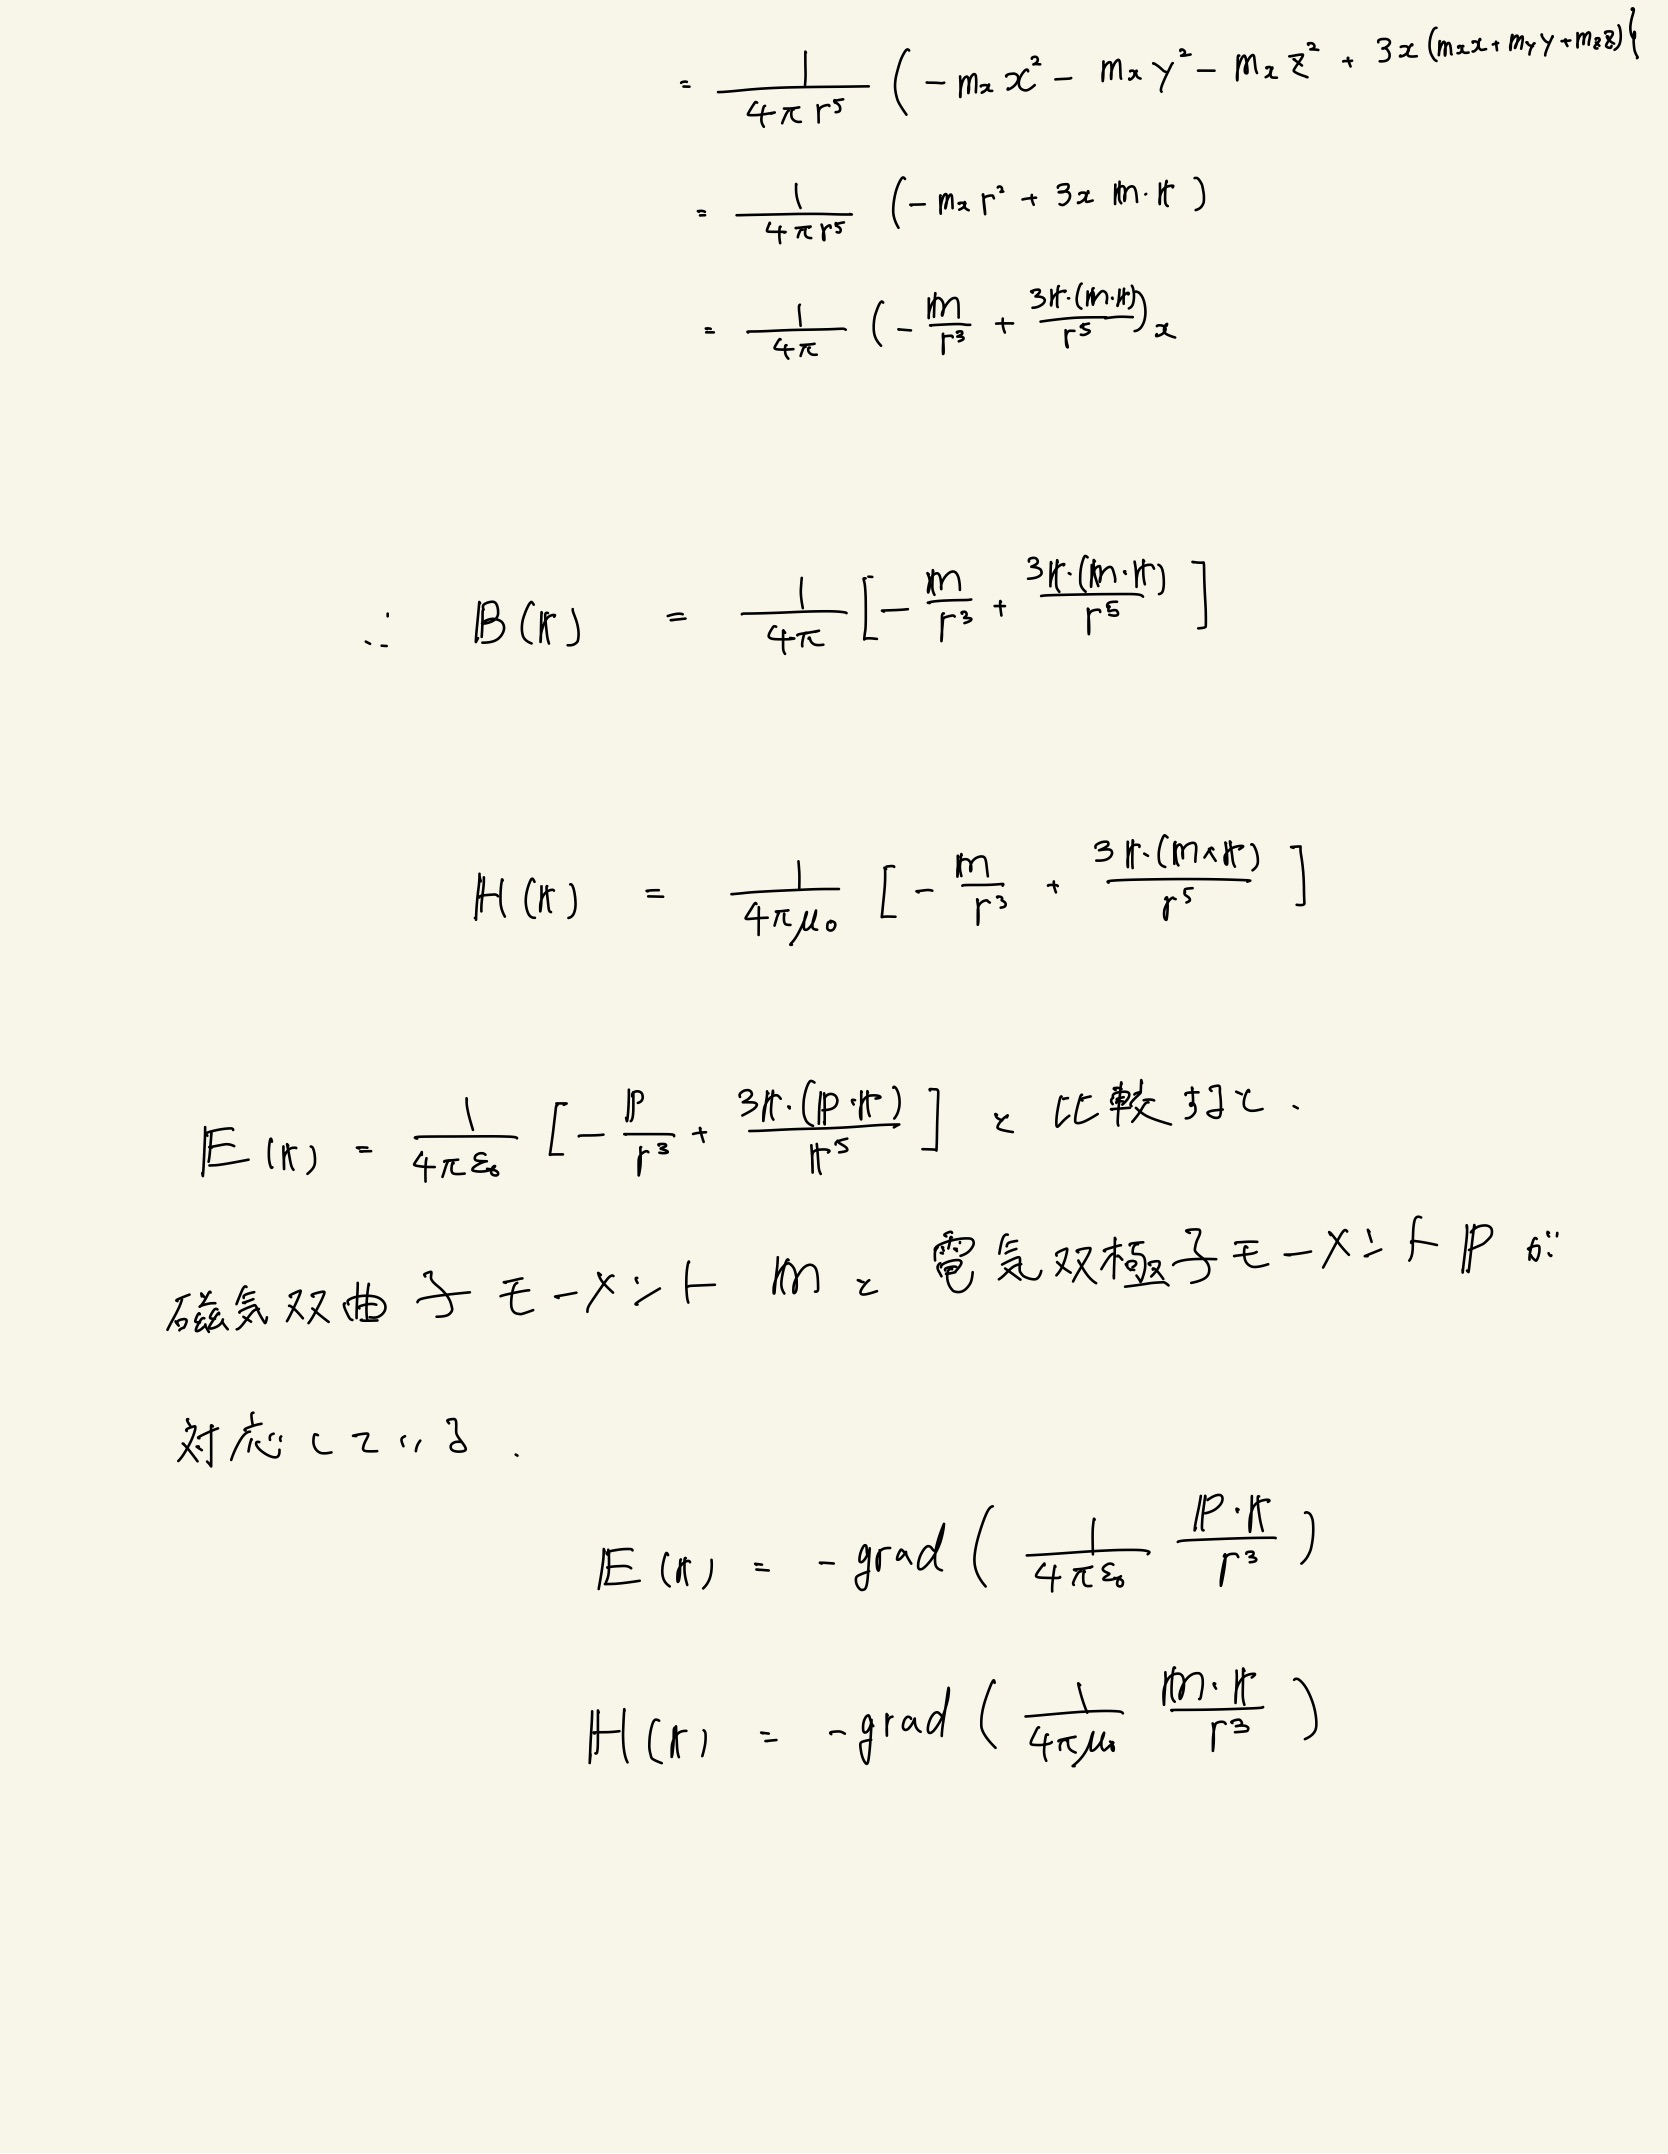 = 1/(4πr⁵) (−mₓx² − mₓy² − mₓz² + 3x(mₓx + m_y y + m_z z))
= 1/(4πr⁵) (−mₓr² + 3x 𝕞·𝕣)
= 1/(4π) (−𝕞/r³ + 3𝕣·(𝕞·𝕣)/r⁵)ₓ
∴ 𝔹(𝕣) = 1/(4π) [−𝕞/r³ + 3𝕣·(𝕞·𝕣)/r⁵]
ℍ(𝕣) = 1/(4πμ₀) [−𝕞/r³ + 3𝕣·(𝕞×𝕣)/r⁵]
𝔼(𝕣) = 1/(4πε₀) [−ℙ/r³ + 3𝕣·(ℙ·𝕣)/𝕣⁵] と比較すると.
磁気双曲子モーメント 𝕞 と 電気双極子モーメント ℙ が
対応している.
𝔼(𝕣) = −grad (1/(4πε₀) ℙ·𝕣/r³)
ℍ(𝕣) = −grad (1/(4πμ₀) 𝕞·𝕣/r³)